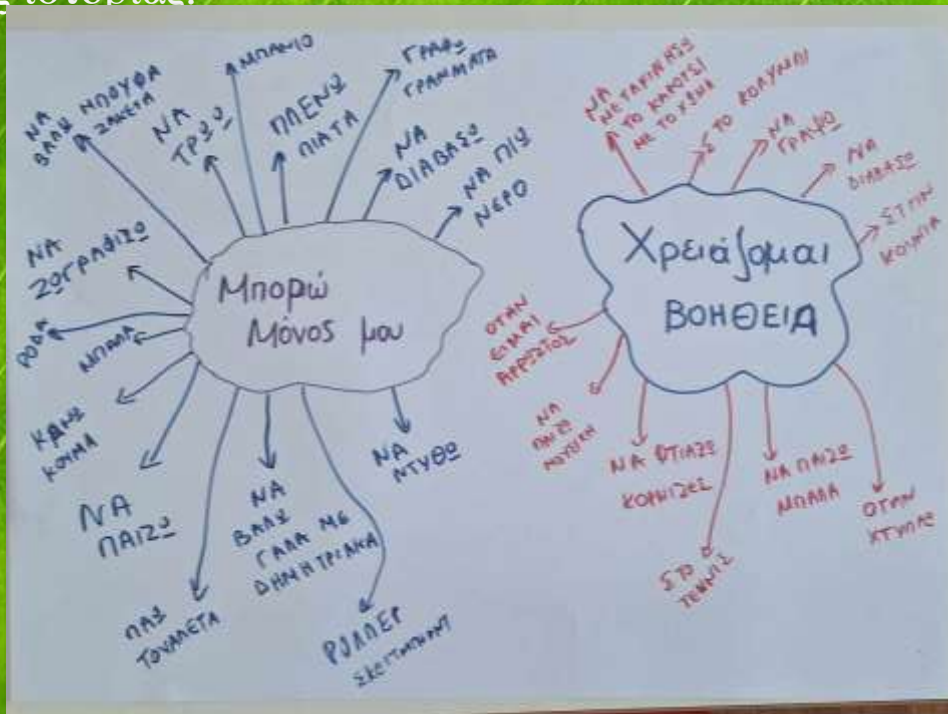 ΝΑ
ΒΑΛΩ ΜΠΟΥΦΑ
ΖΑΚΕΤΑ
ΝΑ
ΤΡΩΩ
ΜΠΑΝΙΟ
ΠΛΕΝΩ
ΠΙΑΤΑ
ΓΡΑΦΩ
ΓΡΑΜΜΑΤΑ
ΝΑ
ΔΙΑΒΑΣΩ
ΝΑ ΠΙΩ
ΝΕΡΟ
ΝΑ
ΖΩΓΡΑΦΙΖΩ
ΡΟΔΑ
ΜΠΑΛΑ
Μπορώ
Μόνος μου
ΚΑΝΩ
ΚΟΥΜΑ
ΝΑ
ΠΑΙΖΩ
ΠΑΩ
ΤΟΥΑΛΕΤΑ
ΝΑ
ΒΑΛΩ
ΓΑΛΑ ΜΕ
ΔΗΜΗΤΡΙΑΚΑ
ΡΟΛΛΕΡ
ΣΚΕΙΤΜΠΟΝΤ
ΝΑ
ΝΤΥΘΩ
ΝΑ
ΜΕΤΑΚΙΝΗΣΩ
ΤΟ ΚΑΡΟΤΣΙ
ΜΕ ΤΟ ΧΩΜΑ
ΣΤΟ ΚΟΛΥΜΠΙ
ΝΑ
ΓΡΑΨΩ
ΝΑ
ΔΙΑΒΑΣΩ
ΣΤΗΝ
ΚΟΥΝΙΑ
Χρειάζομαι
ΒΟΗΘΕΙΑ
ΟΤΑΝ
ΕΙΜΑΙ
ΑΡΡΩΣΤΟΣ
ΝΑ
ΠΑΙΖΩ
ΜΟΥΣΙΚΗ
ΝΑ ΦΤΙΑΞΩ
ΚΟΡΝΙΖΕΣ
ΣΤΟ
ΤΕΝΝΙΣ
ΝΑ ΠΑΙΖΩ
ΜΠΑΛΑ
ΟΤΑΝ
ΧΤΥΠΑΩ